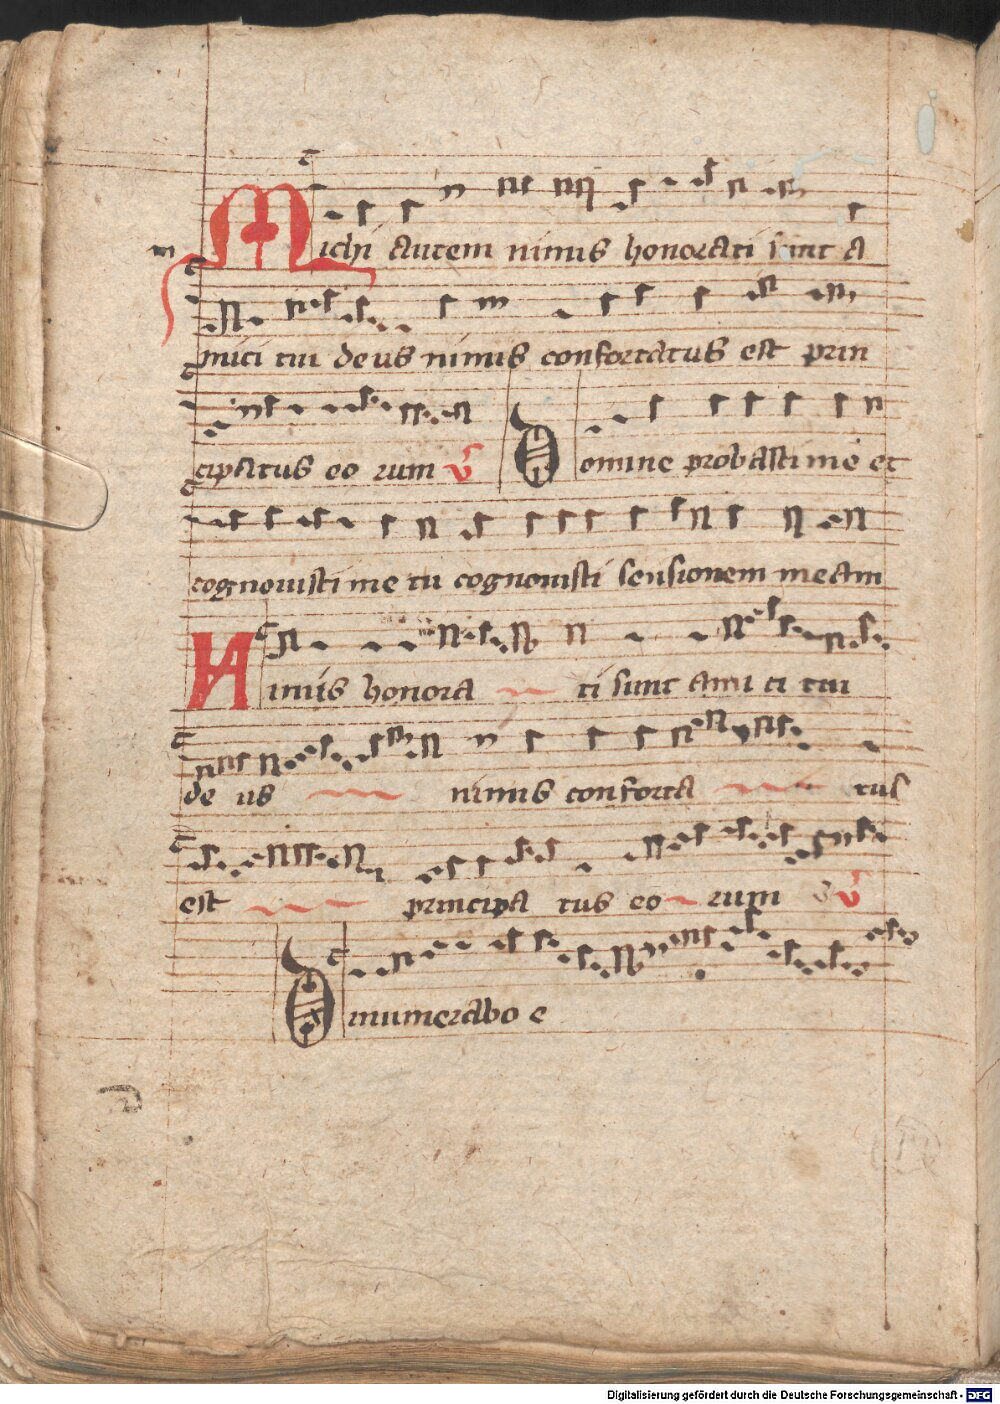 Michi autem nimis honorati sunt a
m
mici tui deus nimis confortatus est prin
cipatus eo rum v Domine probasti me et
cognouisti me tu cognouisti sensionem meam
Nimis honora ti sunt ami ci tui
de us nimis conforta tus
est principa tus eo rum v
Dinumerabo e
Digitalisierung gefördert durch die Deutsche Forschungsgemeinschaft - DFG